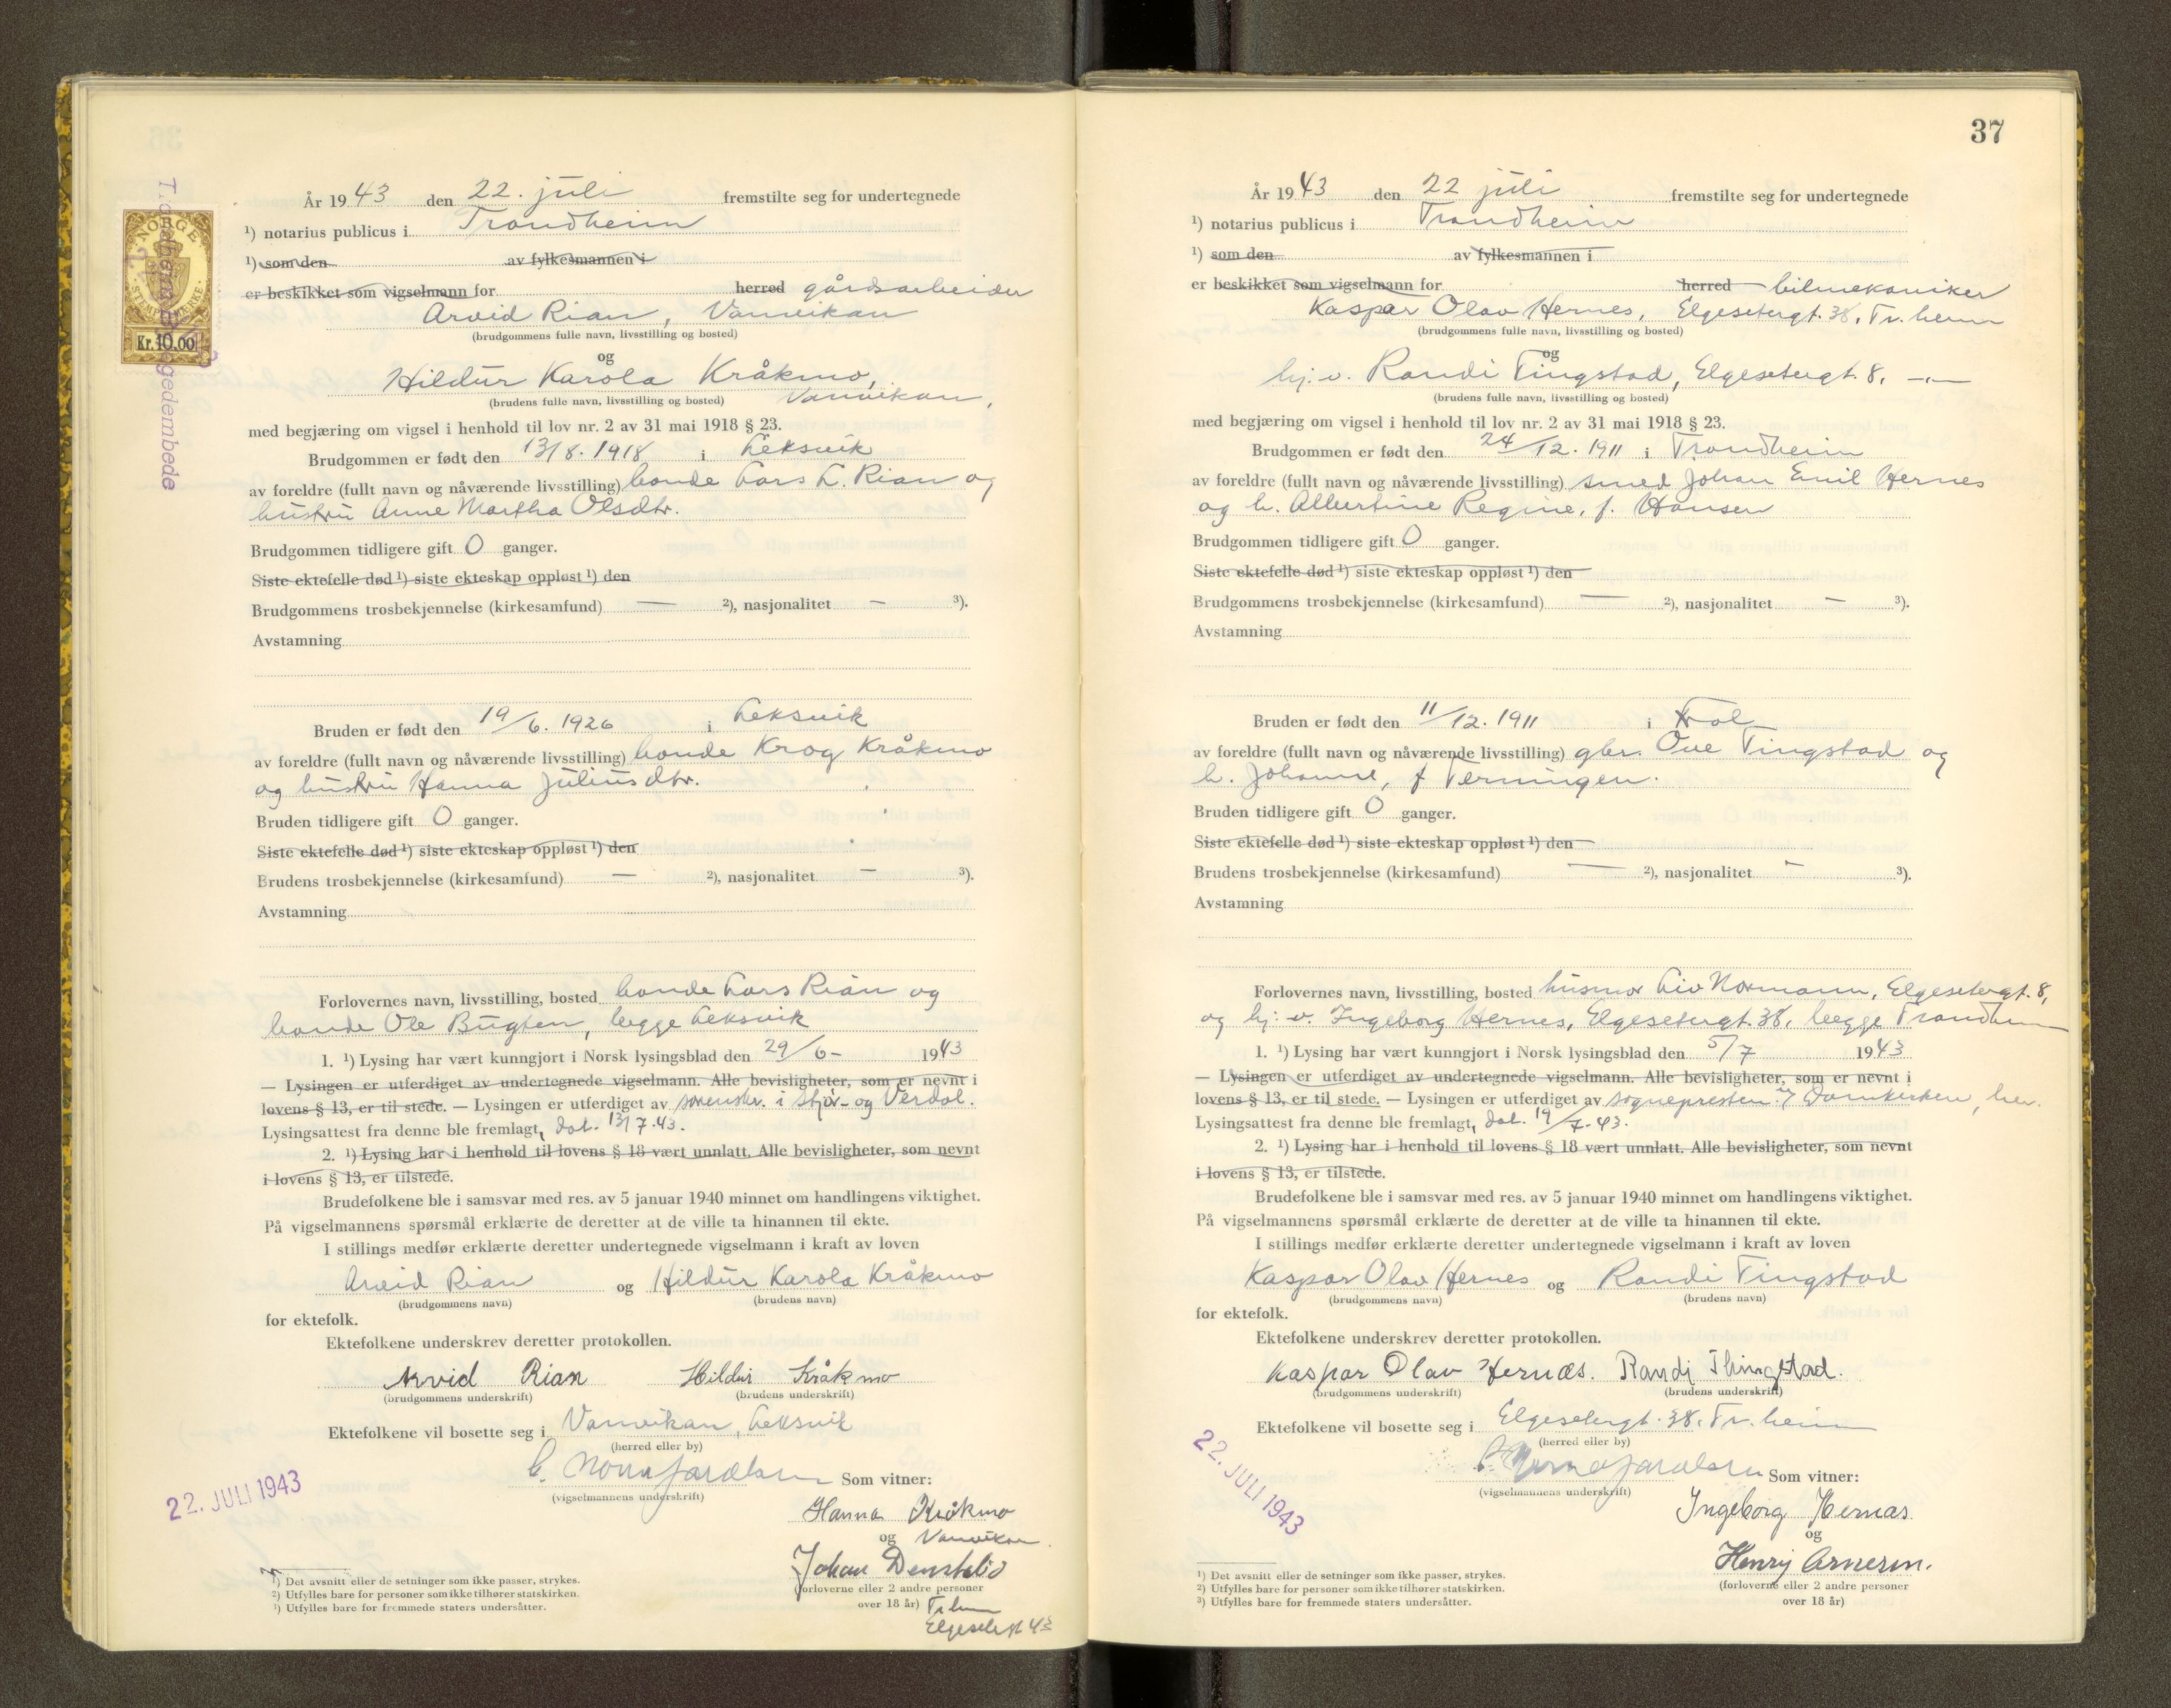 År 1943 den 22. juli fremstilte seg for undertegnede
¹) notarius publicus i Trondheim
¹) som den av fylkesmannen i
er beskikket som vigselmann for herred gårdsarbeider
Arvid Rian, Vanvikan
(brudgommens fulle navn, livsstilling og bosted)
og
Hildur Karola Kråkmo,
(brudens fulle navn, livsstilling og bosted) Vanvikan,
med begjæring om vigsel i henhold til lov nr. 2 av 31 mai 1918 § 23.
Brudgommen er født den 13/8. 1918 i Leksvik
av foreldre (fullt navn og nåværende livsstilling) bonde Lars L. Rian og
hustru Anne Martha Olsdtr.
Brudgommen tidligere gift 0 ganger.
Siste ektefelle død ¹) siste ekteskap oppløst ¹) den
Brudgommens trosbekjennelse (kirkesamfund) — ²), nasjonalitet — ³).
Avstamning
Bruden er født den 19/6. 1926 i Leksvik
av foreldre (fullt navn og nåværende livsstilling) bonde Krog Kråkmo
og hustru Hanna Juliusdtr.
Bruden tidligere gift 0 ganger.
Siste ektefelle død ¹) siste ekteskap oppløst ¹) den
Brudens trosbekjennelse (kirkesamfund) — ²), nasjonalitet — ³).
Avstamning
Forlovernes navn, livsstilling, bosted bonde Lars Rian og
bonde Ole Bugten, begge Leksvik
1. ¹) Lysing har vært kunngjort i Norsk lysingsblad den 29/6- 1943
— Lysingen er utferdiget av undertegnede vigselmann. Alle bevisligheter, som er nevnt i
lovens § 13, er til stede. — Lysingen er utferdiget av sorenskr. i Stjør- og Verdal.
Lysingsattest fra denne ble fremlagt, dat. 13/7.43.
2. ¹) Lysing har i henhold til lovens § 18 vært unnlatt. Alle bevisligheter, som nevnt
i lovens § 13, er tilstede.
Brudefolkene ble i samsvar med res. av 5 januar 1940 minnet om handlingens viktighet.
På vigselmannens spørsmål erklærte de deretter at de ville ta hinannen til ekte.
I stillings medfør erklærte deretter undertegnede vigselmann i kraft av loven
Arvid Rian og Hildur Karola Kråkmo
(brudgommens navn) (brudens navn)
for ektefolk.
Ektefolkene underskrev deretter protokollen.
Arvid Rian Hildur Kråkmo
(brudgommens underskrift) (brudens underskrift)
Ektefolkene vil bosette seg i Vanvikan, Leksvik
(herred eller by)
Som vitner:
(vigselmannens underskrift)
22. JULI 1943
Hanna Kråkmo
og Vanvikan.
Johan Denstslid
(forloverne eller 2 andre personer
over 18 år) Tr.heim
Elgesetergt 43
¹) Det avsnitt eller de setninger som ikke passer, strykes.
²) Utfylles bare for personer som ikke tilhører statskirken.
³) Utfylles bare for fremmede staters undersåtter.
NORGE
STEMPELMERKE
Kr. 10.00
37
År 1943 den 22 juli fremstilte seg for undertegnede
¹) notarius publicus i Trondheim
¹) som den av fylkesmannen i
er beskikket som vigselmann for herred bilmekaniker
Kaspar Olav Hernes, Elgesetergt. 38, Tr.heim
(brudgommens fulle navn, livsstilling og bosted)
og
hj.v. Randi Tingstad, Elgesetergt. 8, -"-
(brudens fulle navn, livsstilling og bosted)
med begjæring om vigsel i henhold til lov nr. 2 av 31 mai 1918 § 23.
Brudgommen er født den 24/12. 1911 i Trondheim
av foreldre (fullt navn og nåværende livsstilling) smed Johan Emil Hernes
og h. Albertine Regine, f. Hansen
Brudgommen tidligere gift 0 ganger.
Siste ektefelle død ¹) siste ekteskap oppløst ¹) den
Brudgommens trosbekjennelse (kirkesamfund) — ²), nasjonalitet — ³).
Avstamning
Bruden er født den 11/12. 1911 i Frol
av foreldre (fullt navn og nåværende livsstilling) gbr. Ove Tingstad og
h. Johanne, f Terningen.
Bruden tidligere gift 0 ganger.
Siste ektefelle død ¹) siste ekteskap oppløst ¹) den
Brudens trosbekjennelse (kirkesamfund) — ²), nasjonalitet — ³).
Avstamning
Forlovernes navn, livsstilling, bosted husmor Liv Normann, Elgesetergt. 8,
og hj. v. Ingeborg Hernes, Elgesetergt. 38, begge Trondheim
1. ¹) Lysing har vært kunngjort i Norsk lysingsblad den 5/7 1943
— Lysingen er utferdiget av undertegnede vigselmann. Alle bevisligheter, som er nevnt i
lovens § 13, er til stede. — Lysingen er utferdiget av sognepresten i Domkirken, her.
Lysingsattest fra denne ble fremlagt, dat. 19/7.43.
2. ¹) Lysing har i henhold til lovens § 18 vært unnlatt. Alle bevisligheter, som nevnt
i lovens § 13, er tilstede.
Brudefolkene ble i samsvar med res. av 5 januar 1940 minnet om handlingens viktighet.
På vigselmannens spørsmål erklærte de deretter at de ville ta hinannen til ekte.
I stillings medfør erklærte deretter undertegnede vigselmann i kraft av loven
Kaspar Olav Hernes og Randi Tingstad
(brudgommens navn) (brudens navn)
for ektefolk.
Ektefolkene underskrev deretter protokollen.
Kaspar Olav Hernæs. Randi Thingstad.
(brudgommens underskrift) (brudens underskrift)
Ektefolkene vil bosette seg i Elgesetergt. 38, Tr.heim
(herred eller by)
Som vitner:
(vigselmannens underskrift)
22. JULI 1943
Ingeborg Hernæs
og
Henry Arnesen.
(forloverne eller 2 andre personer
over 18 år)
¹) Det avsnitt eller de setninger som ikke passer, strykes.
²) Utfylles bare for personer som ikke tilhører statskirken.
³) Utfylles bare for fremmede staters undersåtter.